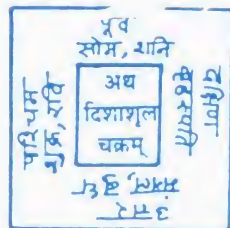 पूर्व
सोम, शनि
अथ
दिशाशूल
चक्रम्
दक्षिण
बृहस्पति
उत्तर
मंगल, बुध
पश्चिम
शुक्र, रवि